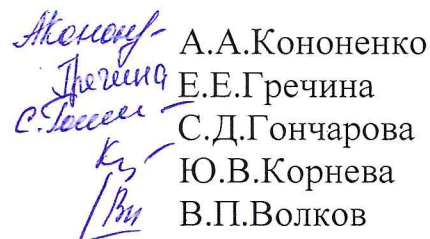 А.А.Кононенко
Гречина Е.Е.Гречина
С.Д.Гончарова
Ю.В.Корнева
В.П.Волков